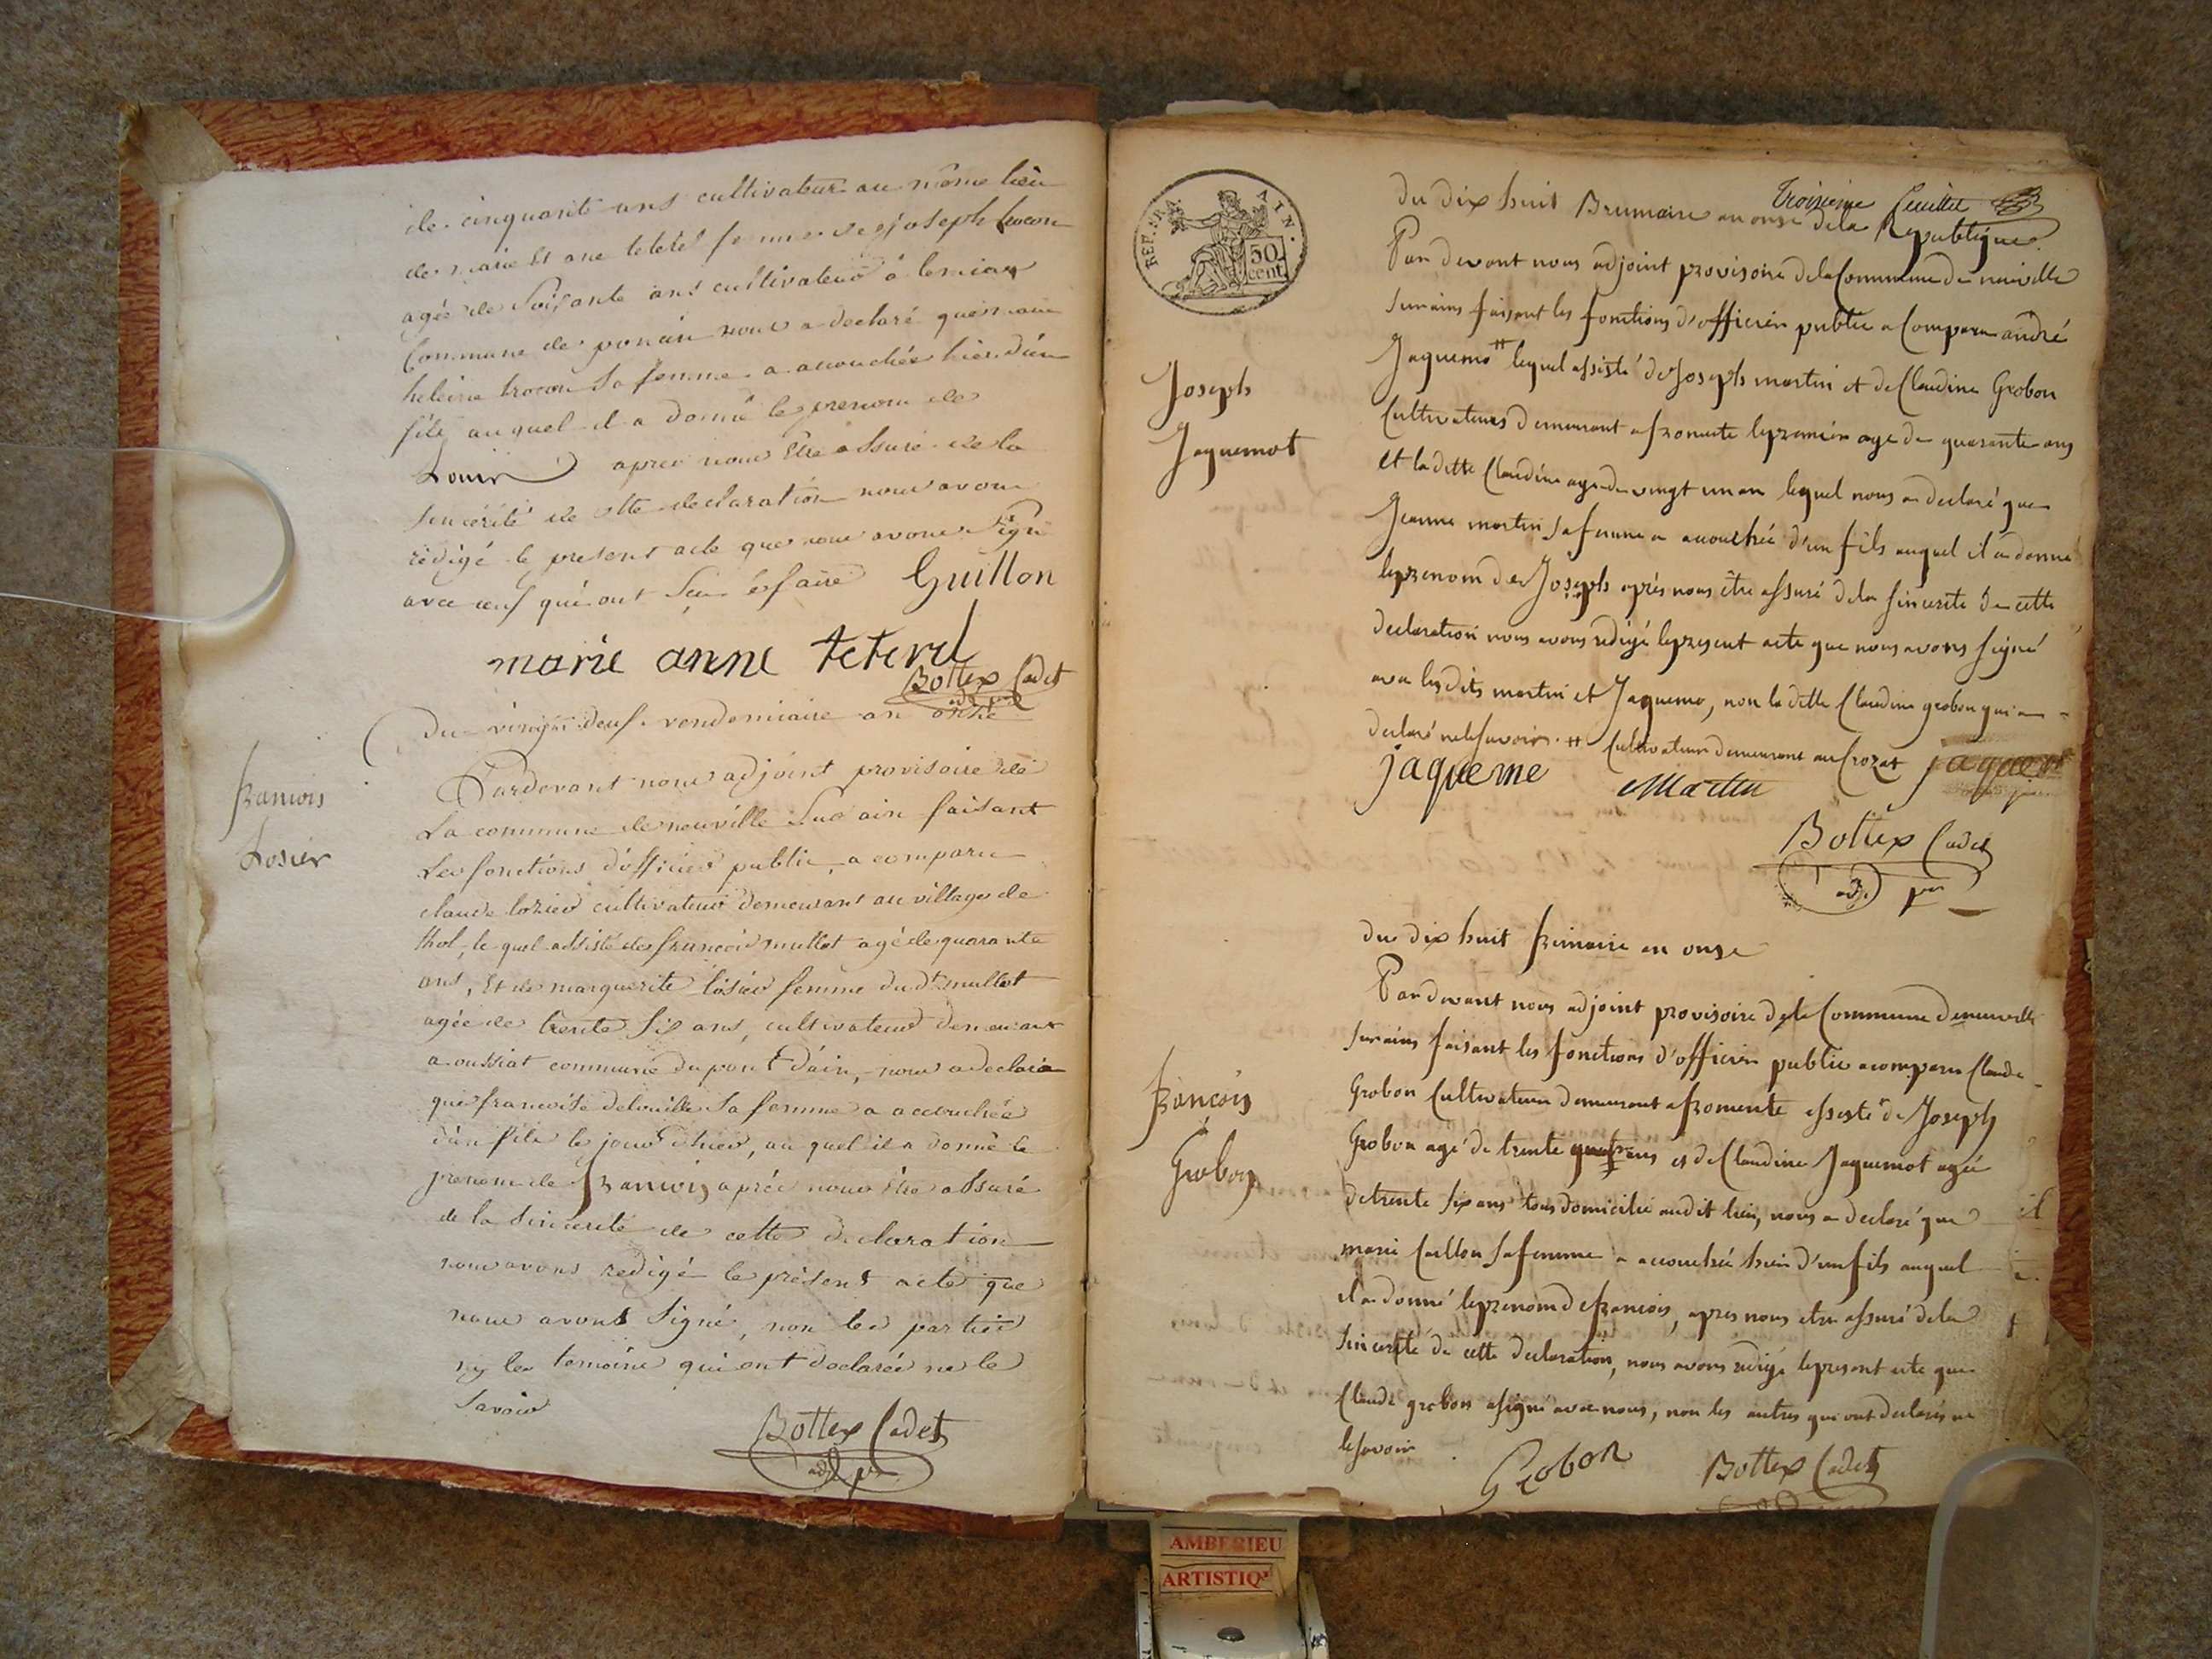 de cinquante ans cultivateur au même lieu
de marie et ane teterel femme de joseph trocon
agée de soixante ans cultivateurs à
Commune de poncin nous a declaré que marie
heleine trocon sa femme a accouchée hier d'un
fils auquel il a donné le prenom de
Louis aprés nous être assuré de la
sincérité de cette declaration nous avons
rédigé le present acte que nous avons signé
avec ceux qui ont sçu le faire Guillon
marie anne teterel
Bottex Cadet
adj pre
Du vingt deux vendemiaire an onze
françois
Losier
Pardevant nous adjoint provisoire de
La commune de neuville sur ain faisant
Les fonctions d'officier public, a comparu
claude lozier cultivateur demeurant au village de
thol, le quel assisté de françois mullet agé de quarante
ans, Et de marguerite losier femme du dt mullet
agée de trente six ans, cultivateurs demeurant
a oussiat commune du pont d'ain, nous a declaré
que francoise sa femme a accouchée
d'un fils le jour d'hier, au quel il a donné le
prenom de francois aprés nous être assuré
de la sincerité de cette declaration
nous avons redigé le présent acte que
nous avons signé, non les parties
ny les temoins qui ont declarés ne le
savoir
Bottex Cadet
adj pre
REP. FRA. AIN.
50 cent
troisieme feuillet
du dix huit Brumaire an onze de la Republique
Joseph
Jaquemot
Par devant nous adjoint provisoire de la Commune de neuville
sur ains faisant les fonctions d'officier public a comparu andré
Jaquemo # lequel assisté de Joseph martin et de Claudine Grobon
Cultivateurs demeurant a fromente le premier agé de quarante ans
et la ditte Claudine agé de vingt un an lequel nous a declaré que
Jeanne martin sa femme a accouchée d'un fils auquel il a donné
le prenom de Joseph après nous être assuré de la sincerité de cette
declaration nous avons redigé le present acte que nous avons signé
avec les dits martin et Jaquemo, non la ditte Claudine grobon qui a
declaré ne le savoir. # Cultivateur demeurant au Crozat
jaqueme Martin
Bottex Cadet
adj pre
du dix huit frimaire an onze
françois
Grobon
Par devant nous adjoint provisoire de la Commune de neuville
sur ains faisant les fonctions d'officier public a comparu Claude
Grobon Cultivateur demeurant a fromente assisté de Joseph
Grobon agé de trente quatre ans et de Claudine Jaquemot agée
de trente six ans tous domicilié audit lieu, nous a declaré que
marie Caillon sa femme a accouchée hier d'un fils auquel
il a donné le prenom de francois, apres nous etre assuré de la
sincerité de cette declaration, nous avons redigé le present acte que
Claude grobon a signé avec nous, non les autres qui ont declarés ne
le savoir
Grobon Bottex Cadet
AMBERIEU
ARTISTIQ